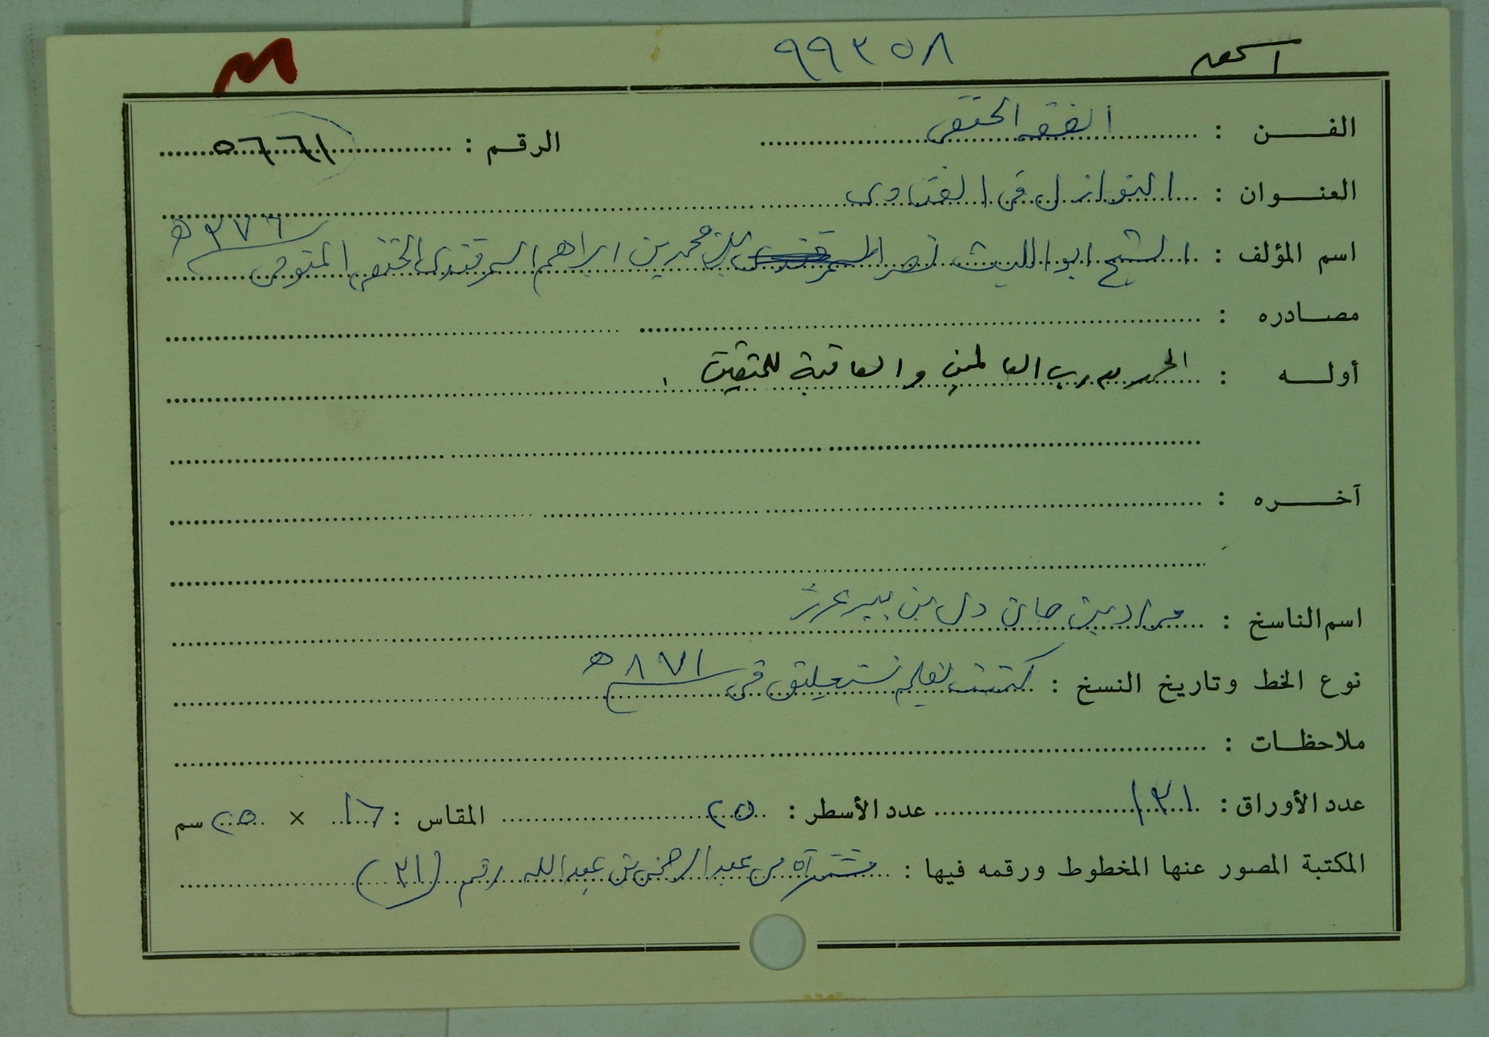 M ٩٩٣٥٨
الفن : الفقه الحنفي الرقم : ٥٦٦١
العنوان : النوازل في الفتاوى
اسم المؤلف : الشيخ ابو الليث نصر بن محمد بن ابراهيم السمرقندي الحنفي المتوفى ٣٧٦ هـ
مصادره :
أوله : الحمد لله رب العالمين والعاقبة للمتقين .
آخره :
اسم الناسخ : دل بن بير
نوع الخط وتاريخ النسخ : كتبت بقلم نستعليق في ٨٧١ هـ
ملاحظات :
عدد الأوراق : ١٣١ عدد الأسطر : ٢٥ المقاس : ١٦ × ٢٥ سم
المكتبة المصور عنها المخطوط ورقمه فيها : مشتراه من عبد الرحمن بن عبد الله رقم (٣١)